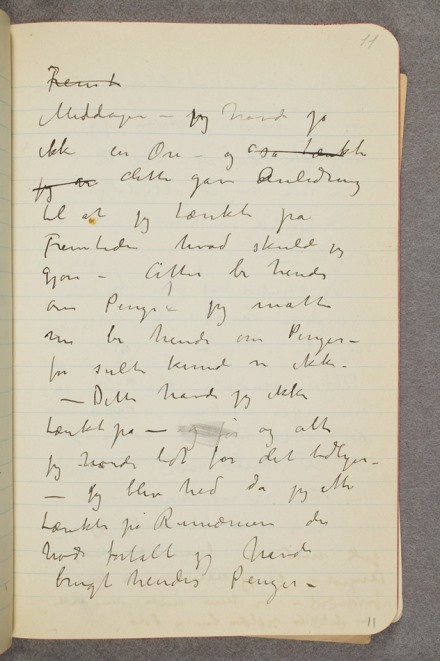 11
Fremt
Middagen – jeg havde jo
ikke en Øre – og saa tænkte
jeg dette gav Anledning
til at jeg tænkte på
Fremtiden hvad skulde jeg
gjøre – Atter be hende
om Penge jeg måtte
be hende om Penge –
for sulte kunde vi ikke –
– Dette havde jeg ikke
tænkt på – og
jeg havde lidt for det tidligere –
– Jeg blev hed da jeg
tænkte på den
havde fortalt jeg havde
brugt hendes Penge –
11